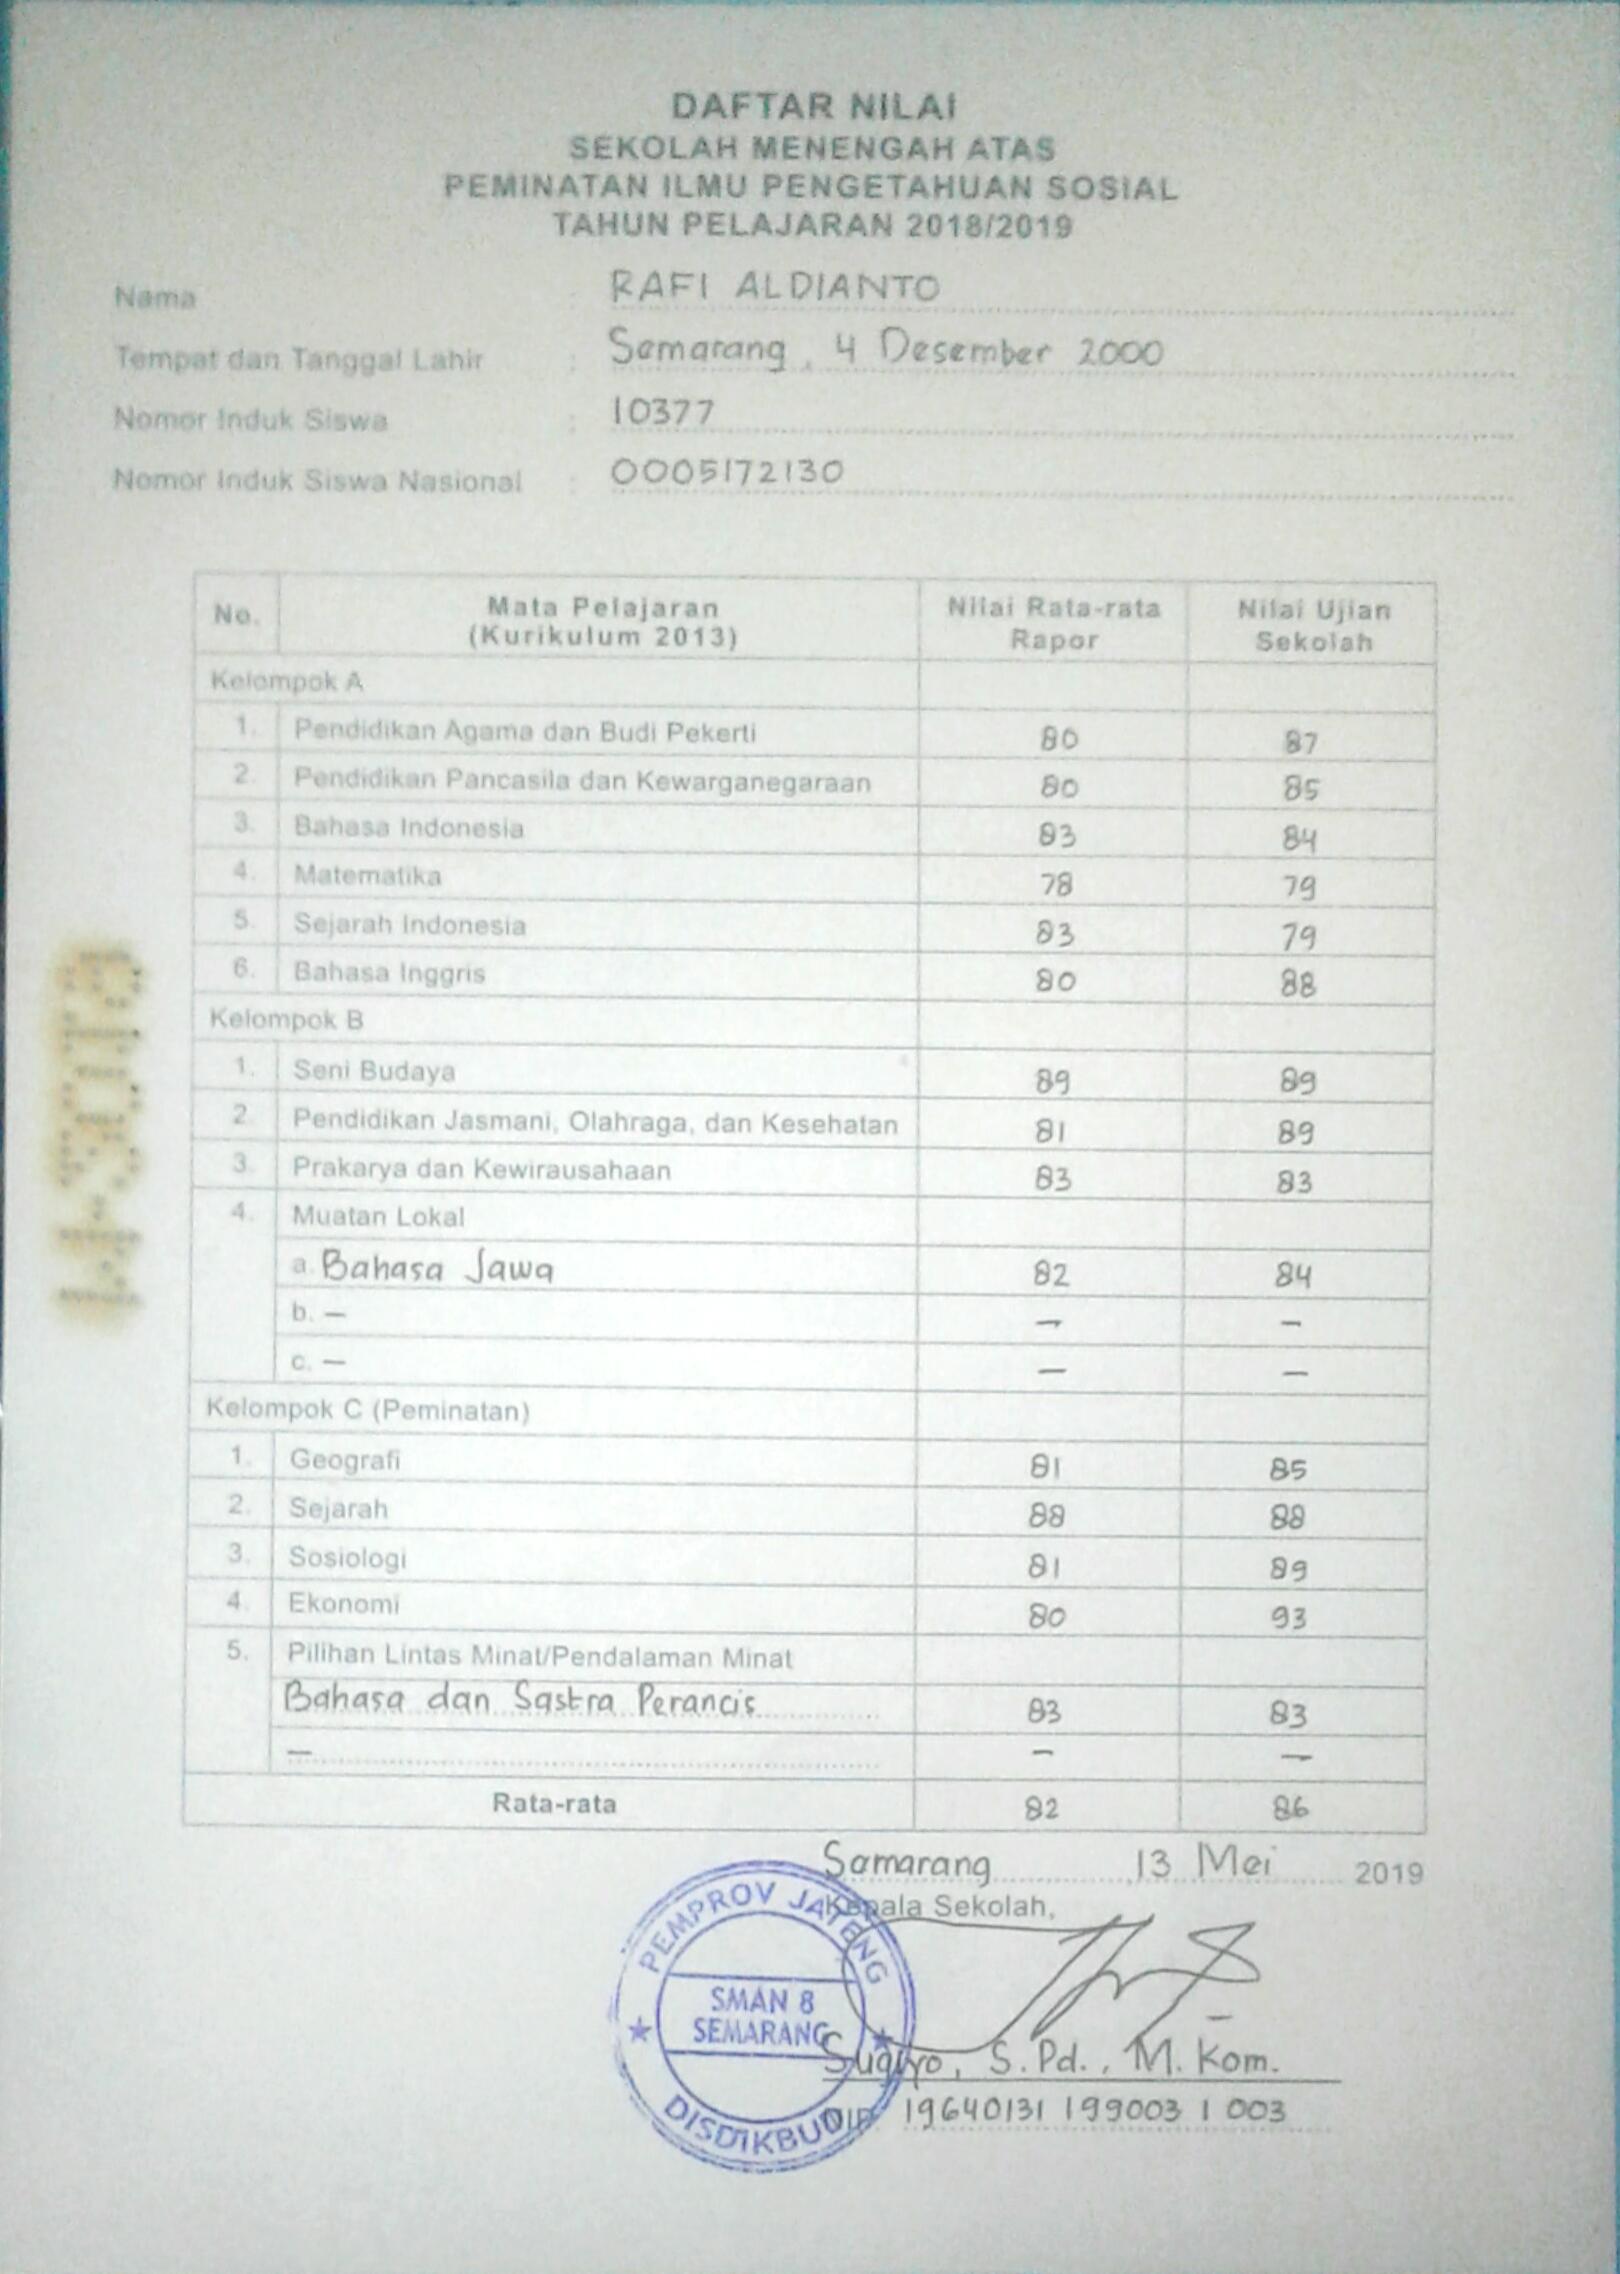 DAFTAR NILAI
SEKOLAH MENENGAH ATAS
PEMINATAN ILMU PENGETAHUAN SOSIAL
TAHUN PELAJARAN 2018/2019
Nama : RAFI ALDIANTO
Tempat dan Tanggal Lahir : Semarang, 4 Desember 2000
Nomor Induk Siswa : 10377
Nomor Induk Siswa Nasional : 0005172130
No. Mata Pelajaran (Kurikulum 2013) Nilai Rata-rata Rapor Nilai Ujian Sekolah
Kelompok A
1. Pendidikan Agama dan Budi Pekerti 80 87
2. Pendidikan Pancasila dan Kewarganegaraan 80 85
3. Bahasa Indonesia 83 84
4. Matematika 78 79
5. Sejarah Indonesia 83 79
6. Bahasa Inggris 80 88
Kelompok B
1. Seni Budaya 89 89
2. Pendidikan Jasmani, Olahraga, dan Kesehatan 81 89
3. Prakarya dan Kewirausahaan 83 83
4. Muatan Lokal
a. Bahasa Jawa 82 84
b. — — —
c. — — —
Kelompok C (Peminatan)
1. Geografi 81 85
2. Sejarah 88 88
3. Sosiologi 81 89
4. Ekonomi 80 93
5. Pilihan Lintas Minat/Pendalaman Minat
Bahasa dan Sastra Perancis 83 83
— — —
Rata-rata 82 86
Semarang, 13 Mei 2019
Kepala Sekolah,
PEMPROV JATENG
SMAN 8
SEMARANG
DISDIKBUD
Sugiyo, S.Pd., M.Kom.
NIP 19640131 199003 1 003